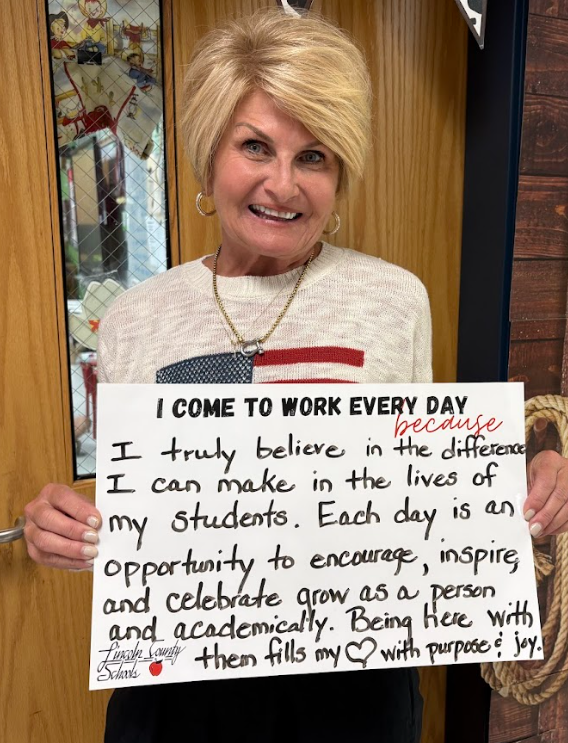 I COME TO WORK EVERY DAY
because
I truly believe in the difference
I can make in the lives of
my students. Each day is an
opportunity to encourage, inspire,
and celebrate grow as a person
and academically. Being here with
them fills my ♡ with purpose & joy.
Lincoln County
Schools